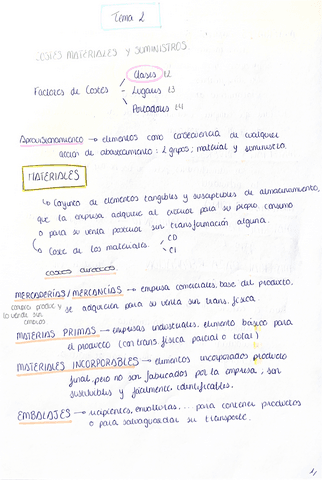 Tema 2
COSTES MATERIALES Y SUMINISTROS
Clases t2
Factores de Costes - Lugares t3
Portadores t4
Aprovisionamiento → elementos como consecuencia de cualquier
acción de abastecimiento: 2 grupos; material y suministro.
MATERIALES
↳ Conjunto de elementos tangibles y susceptibles de almacenamiento,
que la empresa adquiere al exterior para su propio consumo
o para su venta posterior sin transformación alguna.
↳ Coste de los materiales. CD
CI
costes directos
MERCADERÍAS / MERCANCÍAS → empresa comerciales, base del producto,
se adquieren para su venta sin trans. física.
comprar product y
lo vende sin
cambios
MATERIAS PRIMAS → empresas industriales. elemento básico para
el producto (con trans física parcial o total)
MATERIALES INCORPORABLES → elementos incorporados producto
final, pero no son fabricados por la empresa; son
sustituibles y fácilmente identificables.
EMBALAJES → recipientes, envolturas... para contener productos
o para salvaguardar su transporte.
1/